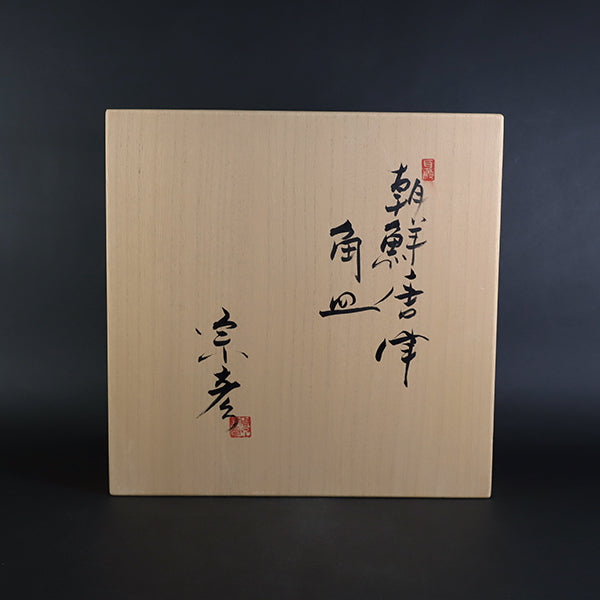 朝鮮唐津
角皿
宗彦